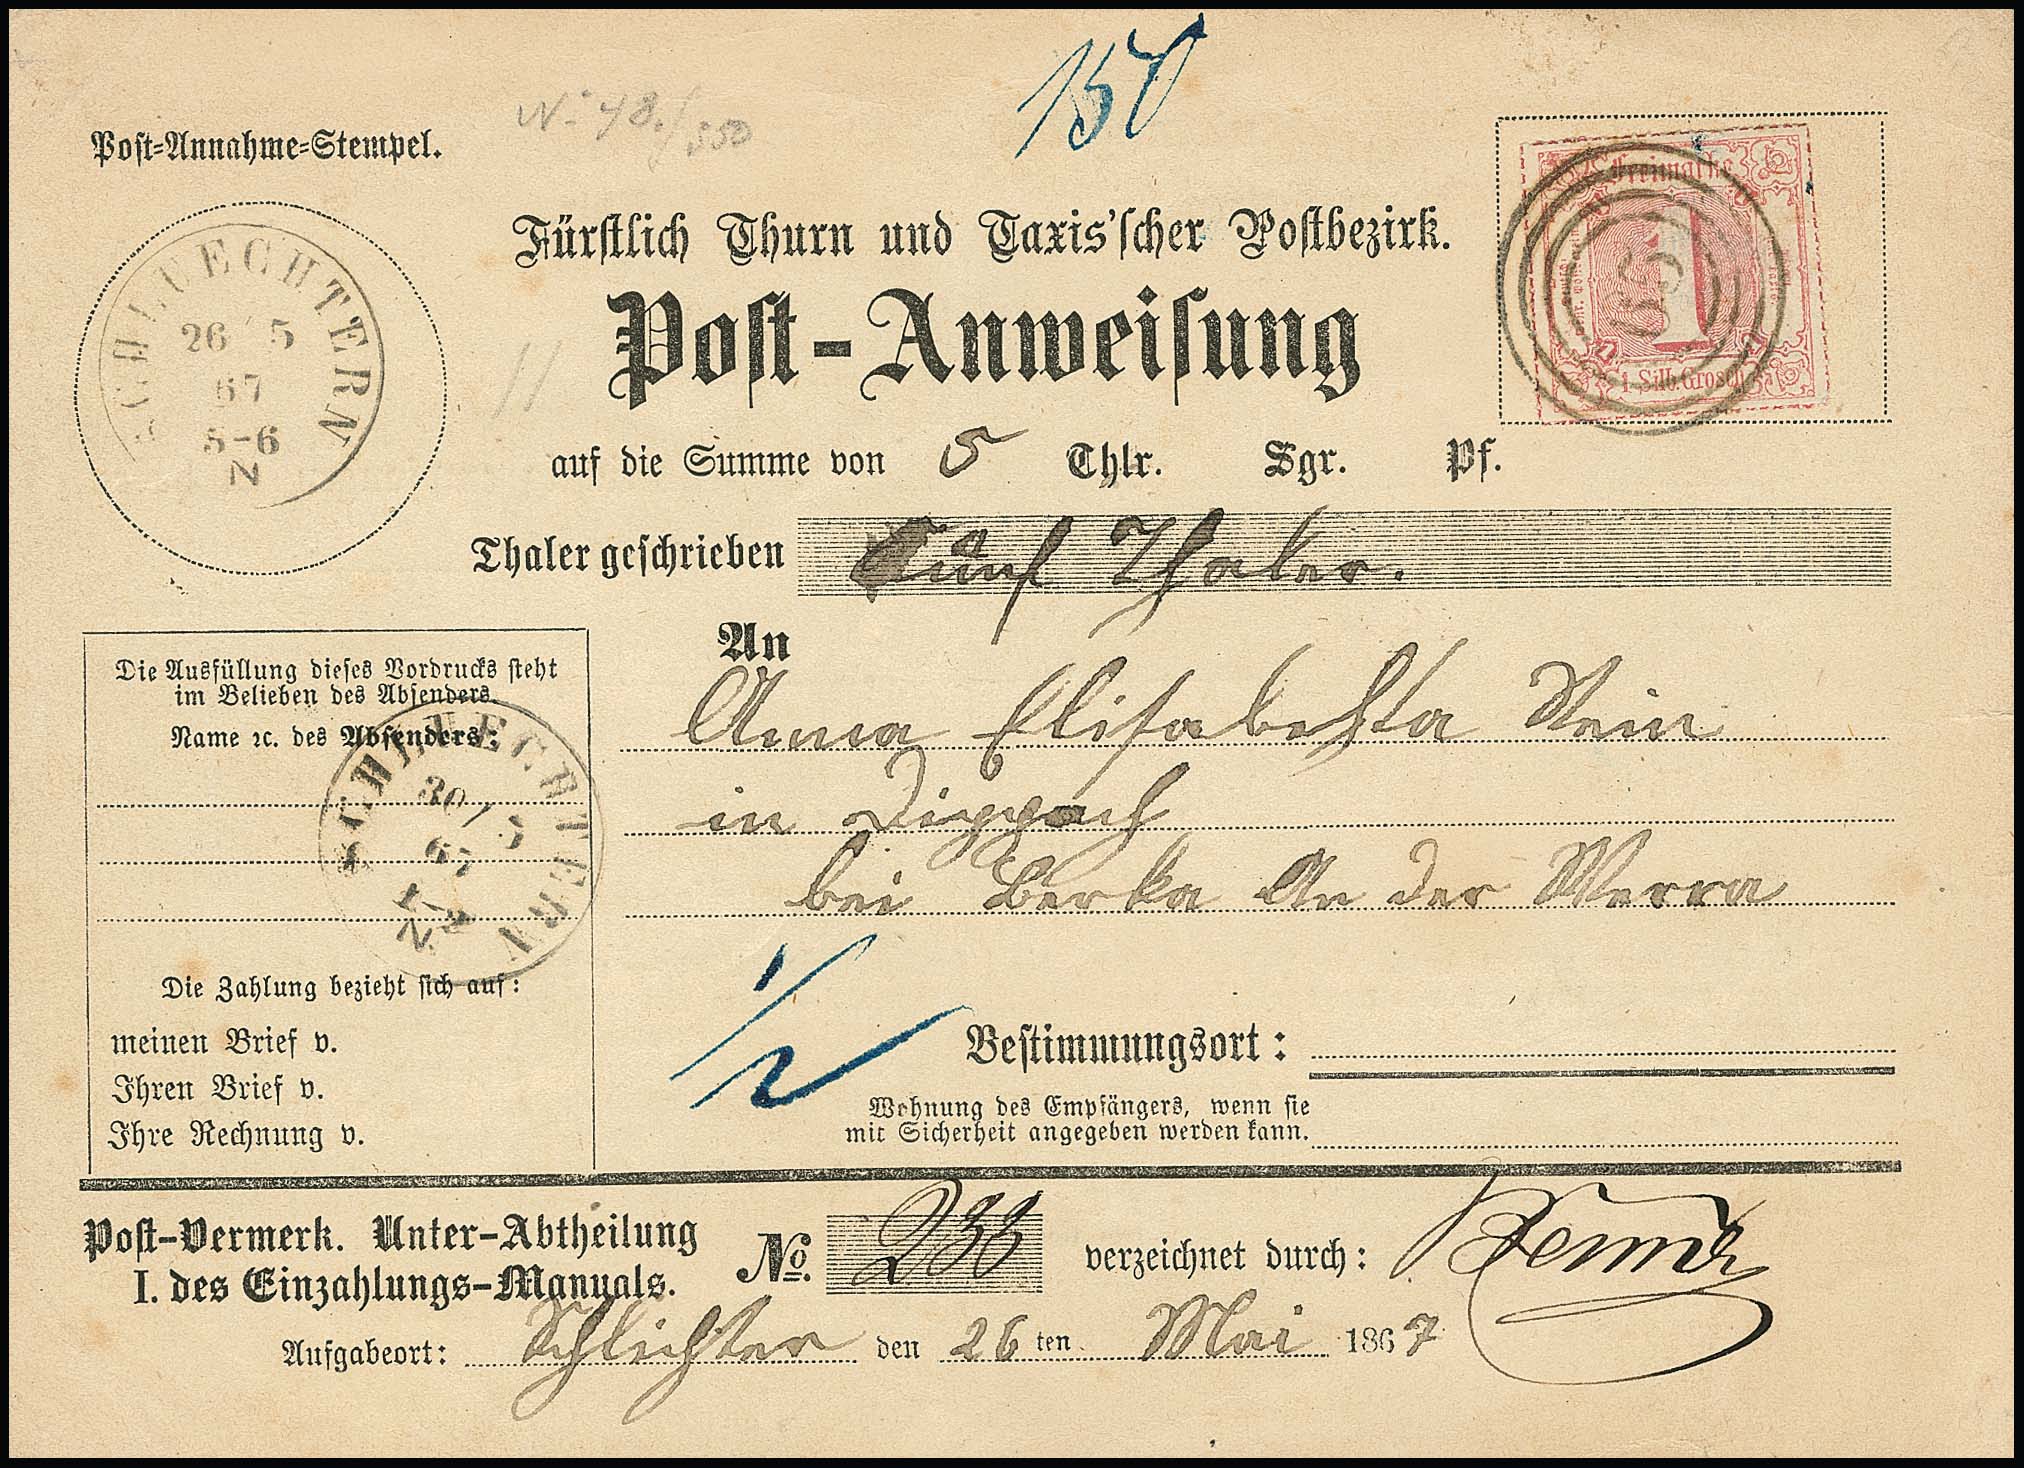 150
No 48./550
Post-Annahme-Stempel.
Freimarke
1
1 Silb. Grosch.
Fürstlich Thurn und Taxis'scher Postbezirk.
SCHLUECHTERN
26 5
67
5-6
N
Post-Anweisung
auf die Summe von 5 Thlr. Sgr. Pf.
Thaler geschrieben Fünf Thaler.
An
Anna Elisabehta Stein
in Dippach
bei Berka An der Werra
Die Ausfüllung dieses Vordrucks steht
im Belieben des Absenders.
Name ꝛc. des Absenders:
SCHLUECHTERN
30 5
67
N
Die Zahlung bezieht sich auf:
meinen Brief v.
Ihren Brief v.
Ihre Rechnung v.
1/2
Bestimmungsort:
Wohnung des Empfängers, wenn sie
mit Sicherheit angegeben werden kann.
Post-Vermerk. Unter-Abtheilung
I. des Einzahlungs-Manuals.
No. 233 verzeichnet durch:
Aufgabeort: Schlichter den 26ten Mai 1867